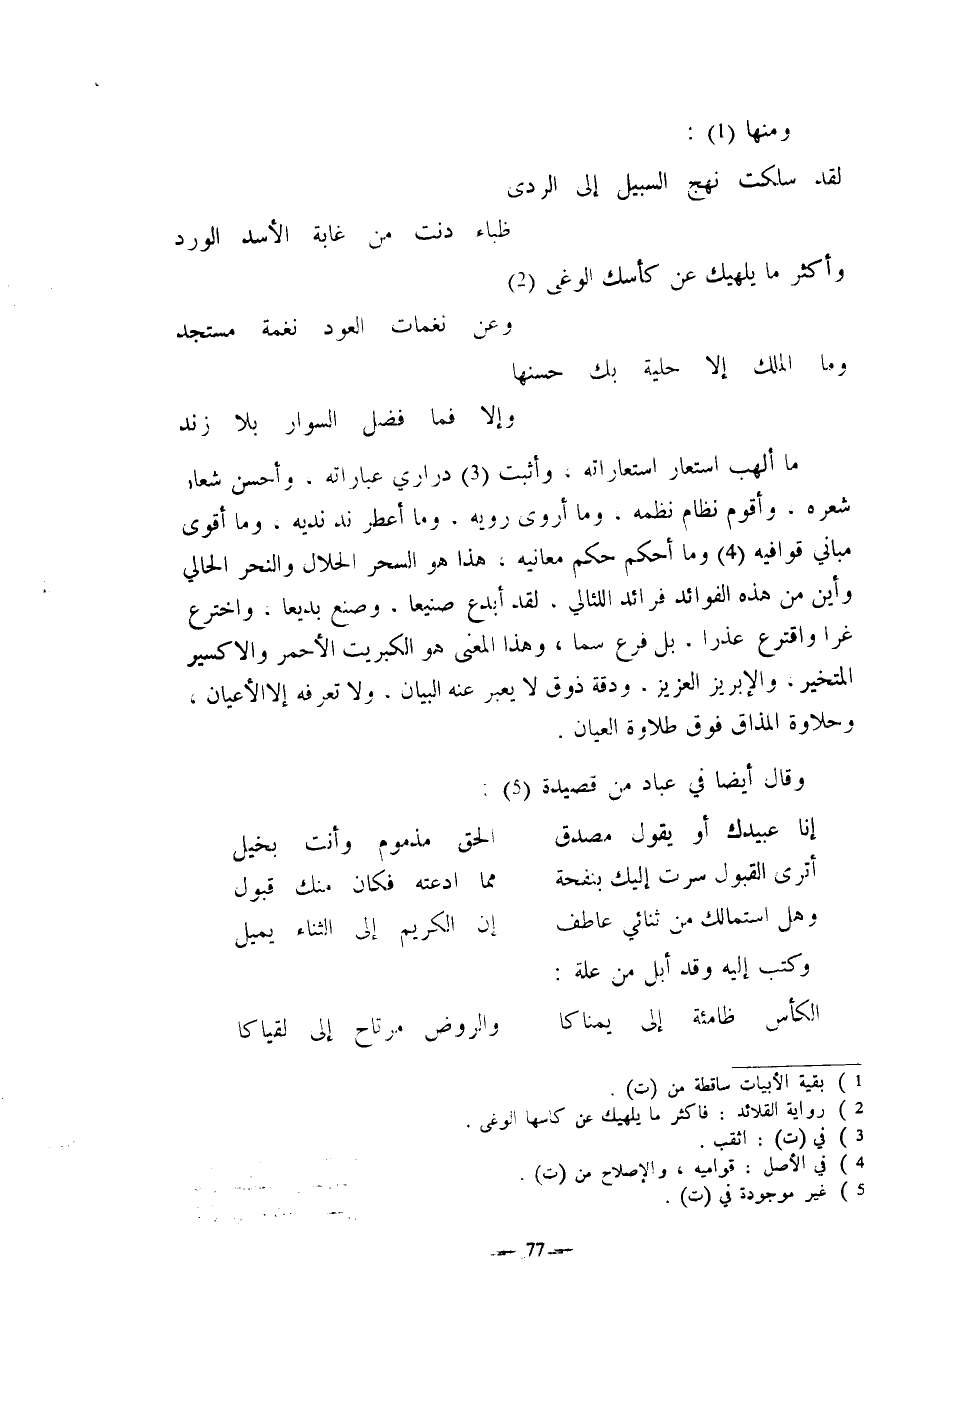 ومنها (1) :
لقد سلكت نهج السبيل إلى الردى
ظباء دنت من غابة الأسد الورد
وأكثر ما يلهيك عن كأسك الوغى (2)
وعن نغمات العود نغمة مستجد
وما الملك إلا حلية بك حسنها
وإلا فما فضل السوار بلا زند
ما ألهب استعار استعاراته . وأثبت (3) دراري عباراته . وأحسن شعار
شعره . وأقوم نظام نظمه . وما أروى رويه . وما أعطر ند نديه . وما أقوى
مباني قوافيه (4) وما أحكم حكم معانيه ، هذا هو السحر الحلال والنحر الحالي
وأين من هذه الفوائد فرائد اللئالي . لقد أبدع صنيعا . وصنع بديعا . واخترع
غرا واقترع عذرا . بل فرع سما ، وهذا المعنى هو الكبريت الأحمر والاكسير
المتخير . والإبريز العزيز . ودقة ذوق لا يعبر عنه البيان . ولا تعرفه إلا الأعيان ،
وحلاوة المذاق فوق طلاوة العيان .
وقال أيضا في عباد من قصيدة (5) :
إنا عبيدك أو يقول مصدق الحق مذموم وأنت بخيل
أترى القبول سرت إليك بنفحة مما ادعته فكان منك قبول
وهل استمالك من ثنائي عاطف إن الكريم إلى الثناء يميل
وكتب إليه وقد أبل من علة :
الكأس ظامئة إلى يمناكا والروض مرتاح إلى لقياكا
1 ) بقية الأبيات ساقطة من (ت) .
2 ) رواية القلائد : فاكثر ما يلهيك عن كاسها الوغى .
3 ) في (ت) : اثقب .
4 ) في الأصل : قواميه ، والإصلاح من (ت) .
5 ) غير موجودة في (ت) .
— 77 —